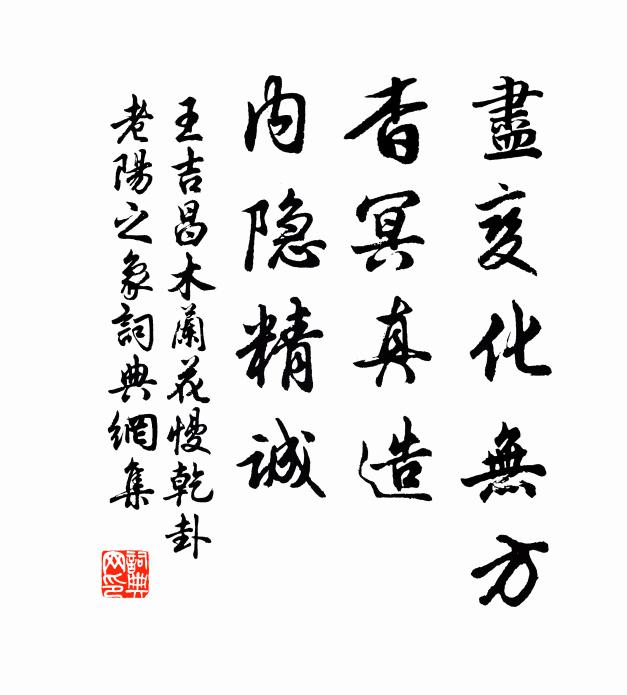 盡变化無方
杳冥真造
内隐精誠
王吉昌木蘭花慢乾卦
老陽之象詞典網集
詞典网印